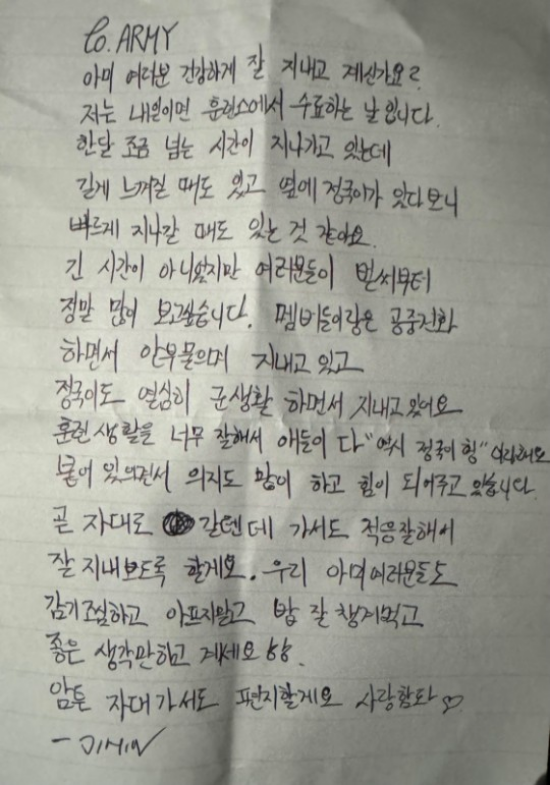 to. ARMY
아미 여러분 건강하게 잘 지내고 계신가요?
저는 내일이면 훈련소에서 수료하는 날입니다.
한달 조금 넘는 시간이 지나가고 있는데
길게 느껴질 때도 있고 옆에 정국이가 있다보니
빠르게 지나갈 때도 있는 것 같아요.
긴 시간이 아니었지만 여러분들이 벌써부터
정말 많이 보고싶습니다. 멤버들이랑은 공중전화
하면서 안부물으며 지내고 있고
정국이도 열심히 군생활 하면서 지내고있어요
훈련 생활을 너무 잘해서 애들이 다 "역시 정국이 형" 이래요
붙어 있으면서 의지도 많이 하고 힘이 되어주고 있습니다.
곧 자대로 갈텐데 가서도 적응잘해서
잘 지내보도록 할게요. 우리 아미여러분들도
감기조심하고 아프지말고 밥 잘 챙겨먹고
좋은 생각만하고 계세요
암튼 자대가서도 편지할게요 사랑함돠♡
- JIMIN